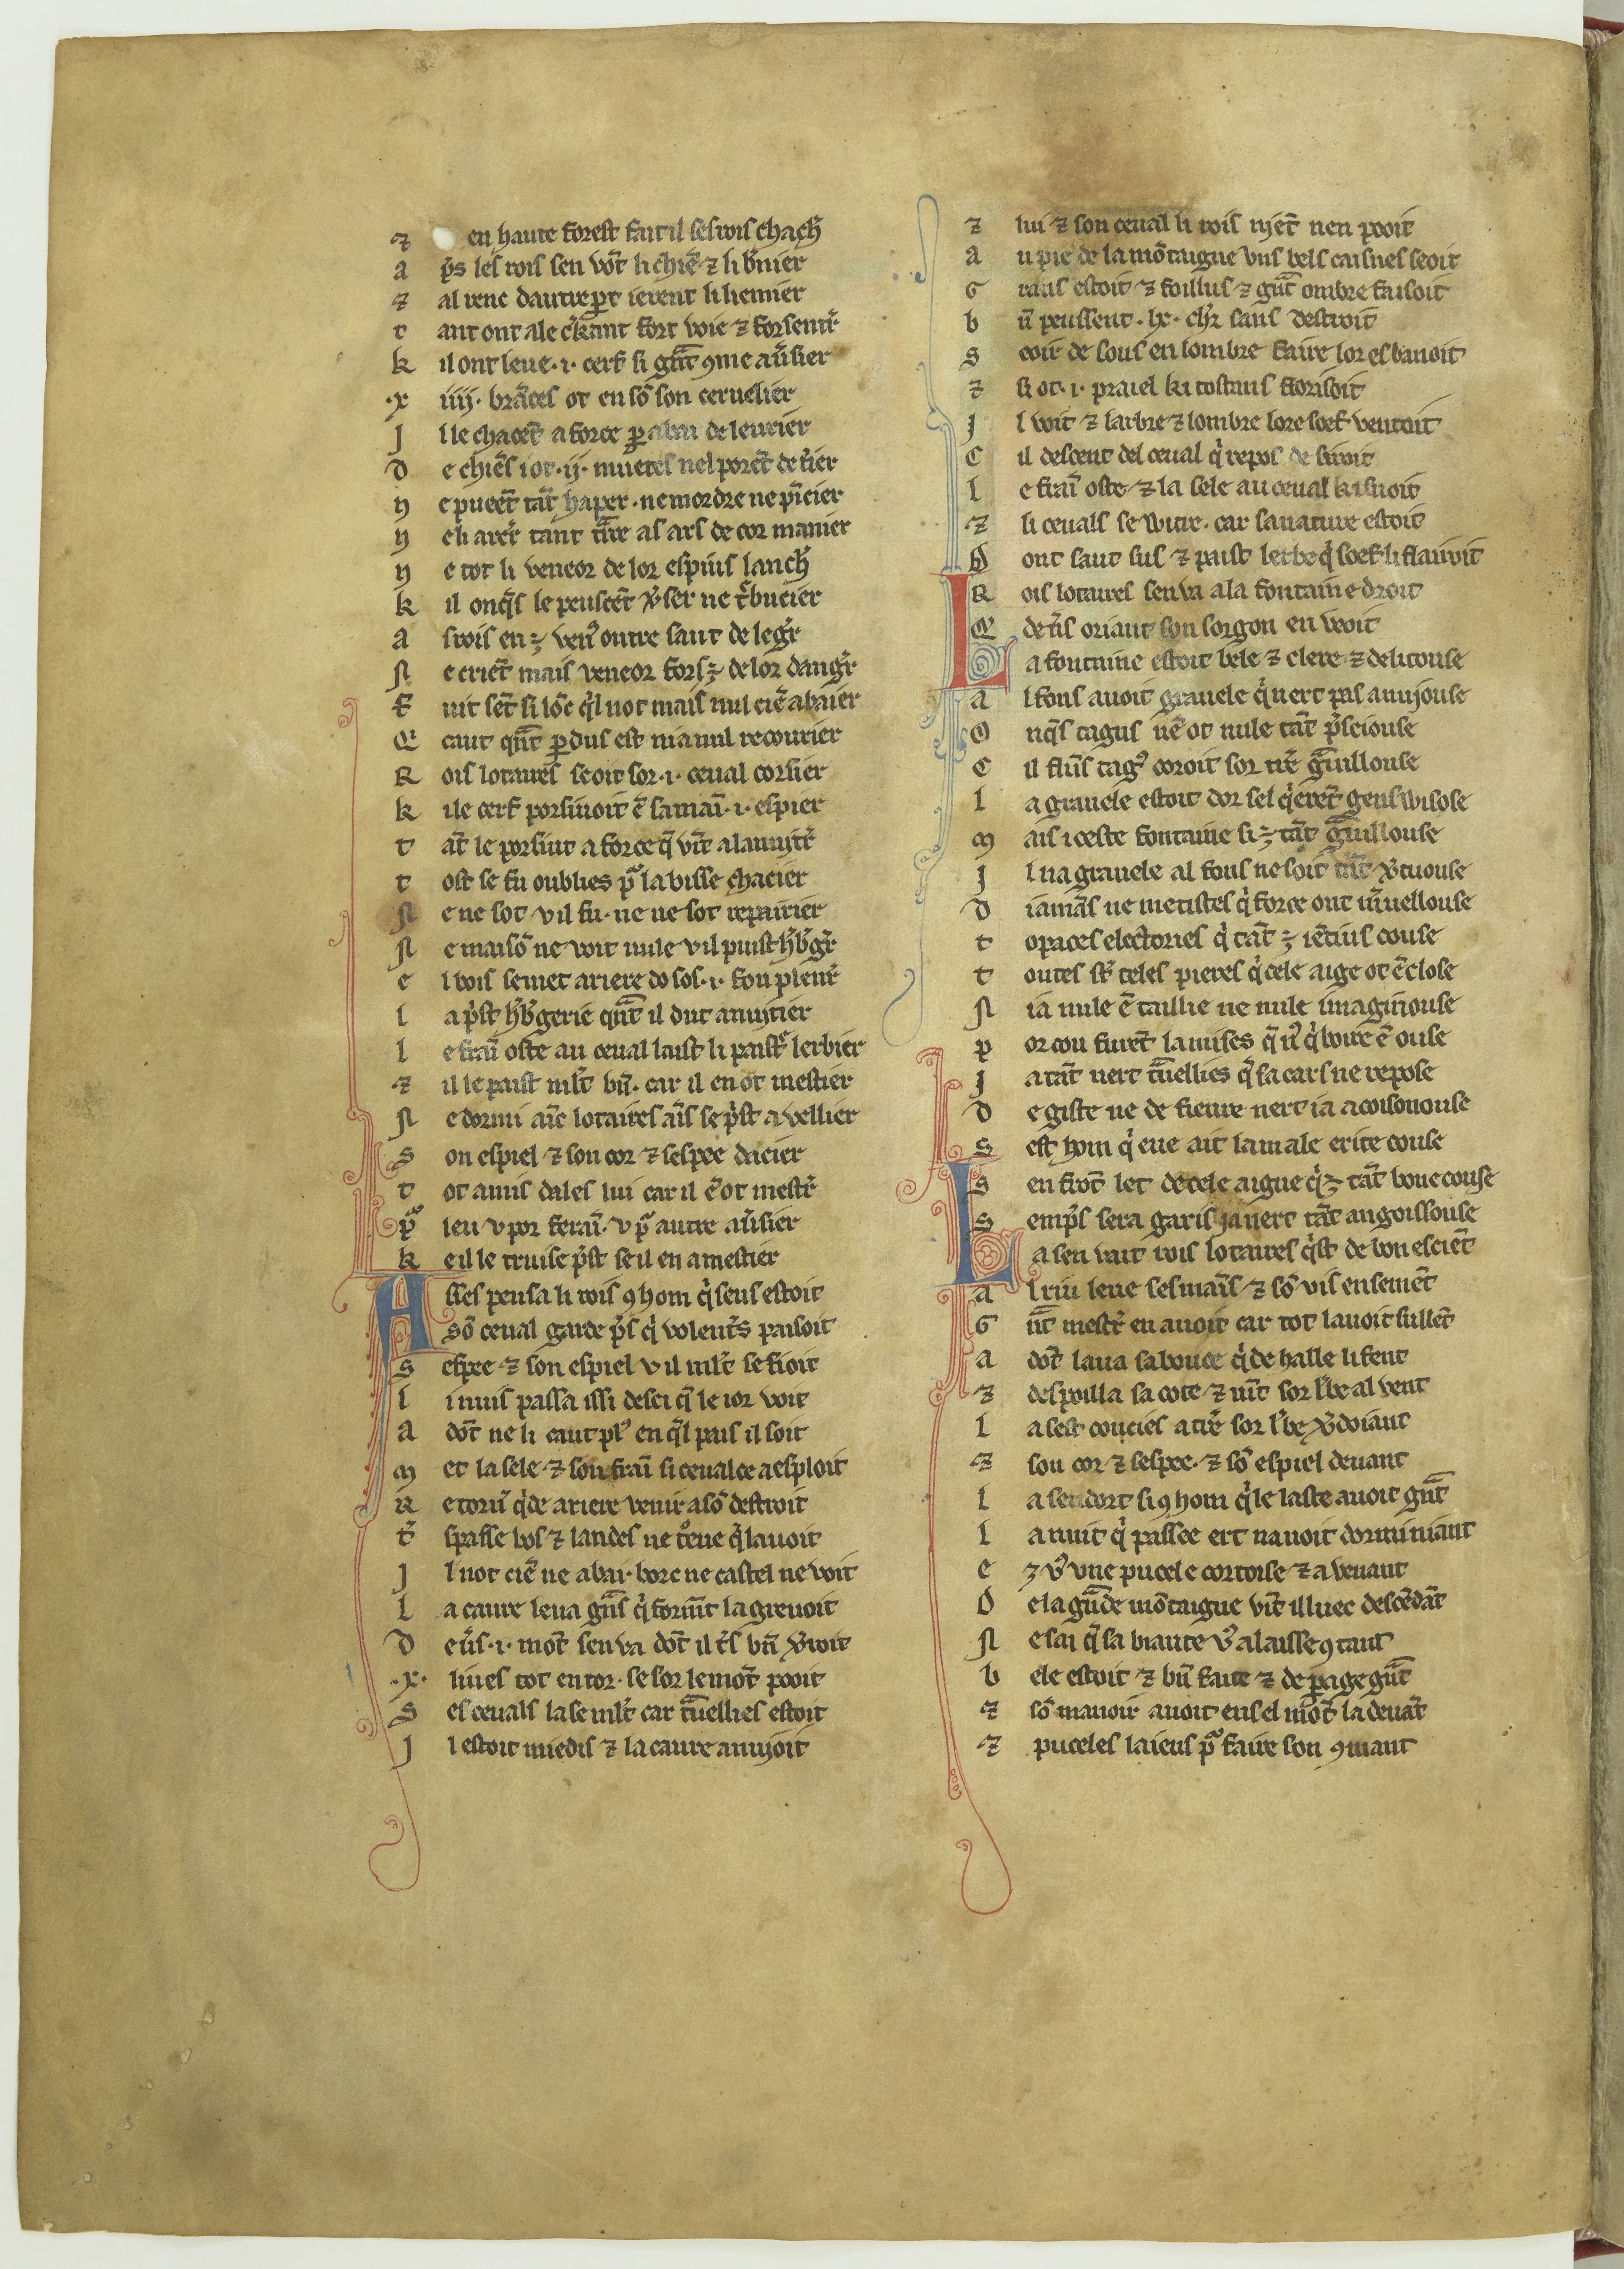 ⁊ en haute forest fait il ses rois chach̛
a p̃s les rois sen võt li chiẽ ⁊ li b̛nier
⁊ al rene dautre ꝑt ierent li liemier
t ant ont ale c̛kant fort voie ⁊ fors sent̛
k il ont leue .i. cerf si gñt ꝯme aưsier
.x iiij. brãces ot en sõ son ceruelier
J l le chacẽt a force ꝑ abai de leurier
D e chiẽs i ot .ij. muetes nel porẽt de t̛ier
N e pueẽt tãt haper . ne mordre ne pĩcier
N e li arc̛r tant t̃re as ars de cor manier
N e tot li veneor de lor espius lanch̛
k il onq̃s le peuscẽt v̛ser ne t̛bucier
a s rois en ⁊ ven⁹ outre saut de leg̛r
N e criẽt mais veneor fors ⁊ de lor dang̛r
F uit sẽt si lõc q̛l not mais nul ciẽ abaier
E caut qñt ꝑdus est ni a nul recourier
R ois lotaires seoit sor .i. ceual corsier
k i le cerf porsiuoit ẽ sa maĩ .i. espier
t ãt le porsiut a force q̃ vĩt a lanuit̛r
t ost se fu oublies pᵃ la bisse chacier
N e ne sot v il fu . ne ne sot repairier
N e maisõ ne voit nule v il puist h̛b̛g̛r
e l bois se met ariere do sos .i. fou plenir̛
l a p̛st h̛b̛gerie qñt il dut anuitier
l e fraĩ oste au ceual laist li paist̛ lerbier
⁊ il le paist ml̃t bñ . car il en ot mestier
N e dormi aĩc lotaires aĩs se p̛st a vellier
S on espiel ⁊ son cor ⁊ sespee dacier
t ot a mis dales lui car il ẽ ot mest̛r
pᵃ leu v por feraĩ . v pᵃ autre aưsier
k e il le truise p̛st se il en a mestier
A sses pensa li rois ꝯ hom q̛ seus estoit
A sõ ceual garde p̃s q̛ volent̛s paisoit
S espee ⁊ son espiel v il ml̃t se fioit
l i nuis passa issi desci q̃ le ior voit
A dõt ne li caut pl⁹ en q̃l pais il soit
M et la sele ⁊ son fraĩ si ceualce a esploit
R etorñ q̛de ariere venir a sõ destroit
t̛ spasse bos ⁊ landes ne tͦeue q̛ lauoit
J l not ciẽ ne abai . borc ne castel ne voit
L a caure leua gñs q̛ formt̃ la greuoit
D eưs .i. mõt sen va dõt il t̛s bñ v̛roit
.x. liues tot entor . se sor le mõt pooit
S es ceuals lase ml̃t car t̃uellies estoit
J l estoit miedis ⁊ la caure anuioit
⁊ lui ⁊ son ceual li rois niẽt nen pooit
a u pie de la mõtaigne vns bels caisnes seoit
G rans estoit ⁊ foillus ⁊ gñt ombre faisoit
b ñ peussent .lx. ch̛r sans destroit
S eoir de sous en lombre faire lor esbanoit
⁊ si ot .i. praiel ki tostans florisoit
J l voit ⁊ larbre ⁊ lombre lore soef ventoit
C il descent del ceual q̛ repos de siroit
l e fraĩ oste ⁊ la sele au ceual ki suoit
⁊ li ceuals se witre . car sa nature estoit
D ont saut sus ⁊ paist lerbe q̛ soef li flairoit
R ois lotaires sen va a la fontaine droit
E deưs oriant son sorgon en veoit
L a fontaine estoit bele ⁊ clere ⁊ delitouse
A l fons auoit grauele q̛ nert pas anujouse
O nq̃s tagus nẽ ot nule tãt p̛sciouse
C il flũs tag⁹ coroit sor t̛re gᵃuillouse
l a grauele estoit dor sel q̛erẽt gens wisose
M ais iceste fontaine si ⁊ tãt gᵃuillouse
J l na grauele al fons ne soit tãt v̛tuouse
D iamãs ne metistes q̛ force ont m̛uellouse
t opaces electories q̛ tãt ⁊ iẽtius couse
t outes st̛ teles pieres q̛ cele aige ot ẽclose
N ia nule ẽ taillie ne nule imaginouse
P or cou furẽt la mises q̃ n⁹ q̛ boire ẽ ouse
J a tãt nert t̃uellies q̃ sa cars ne repose
D e giste ne de fieure nert ia acoisonouse
S est hom q̛ eue ait la male erite couse
S en frot̃ let de cele aigue q̛ ⁊ tãt bone couse
S emp̃s sera garis ja nert tãt angoissouse
L a sen vait rois lotaires q̛st de bon esciẽt
A l riu leue ses maĩs ⁊ sõ vis ensemẽt
G ñt mest̛r en auoit car tot lauoit sullẽt
A dõt laua sa bouce q̛ de halle li fent
⁊ despoilla sa cote ⁊ mĩt sor l̛be al vent
L a sest coucies a t̛re sor l̛be v̛doiant
⁊ son cor ⁊ sespee . ⁊ sõ espiel deuant
L a sendort si ꝯ hom q̛ le laste auoit gñt
L a nuit q̛ passee ert nauoit dormi niant
e ⁊ v⁹ vne pucele cortoise ⁊ a venant
D e la gñde mõtaigne vĩt illuec descẽdãt
N e sai q̃ sa biaute v⁹ alaisse ꝯtant
b ele estoit ⁊ bñ faite ⁊ de ꝑage gñt
⁊ sõ manoir auoit ens el mõt la deuãt
⁊ puceles laiens pᵃ faire son ꝯmant